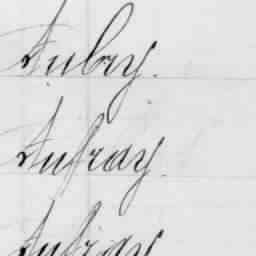 Aubry.
Aufray.
Aufray